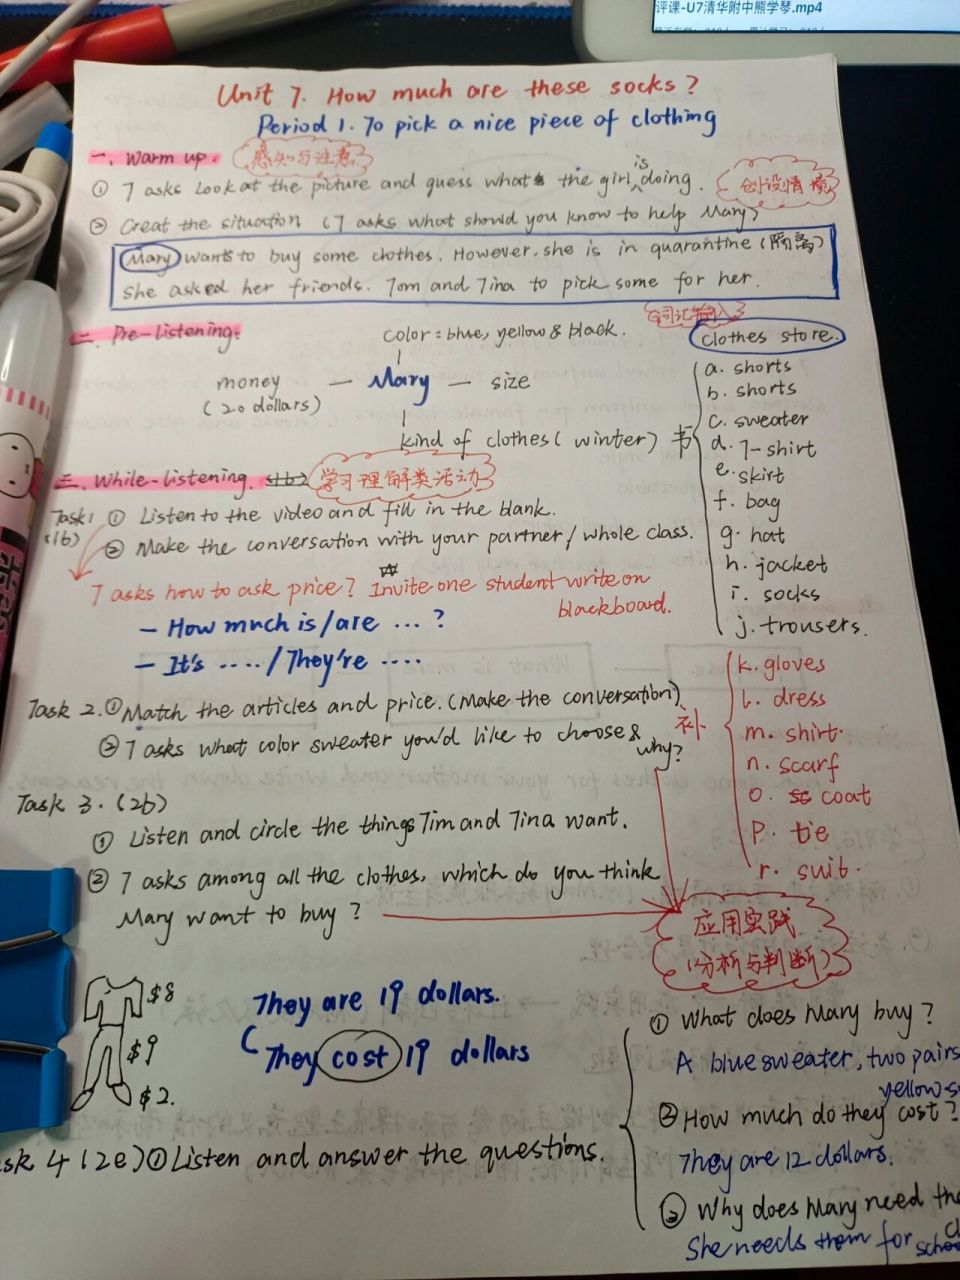 评课-U7清华附中熊学琴.mp4
Unit 7. How much are these socks?
Period 1. To pick a nice piece of clothing
一、Warm up.
感知与注意
① T asks Look at the picture and guess what the girl is doing.
创设情境
② Creat the situation (T asks what should you know to help Mary)
Mary wants to buy some clothes. However, she is in quarantine (隔离)
She asked her friends. Tom and Tina to pick some for her.
二、Pre-listening.
词汇输入
color = blue, yellow & black.
money
(20 dollars)
— Mary — size
kind of clothes (winter)
clothes store.
书
a. shorts
b. shorts
c. sweater
d. T-shirt
e. skirt
f. bag
g. hat
h. jacket
i. socks
j. trousers.
补
k. gloves
l. dress
m. shirt.
n. scarf
o. coat
p. tie
r. suit.
三、While-listening.
学习理解类活动
Task1 ① Listen to the video and fill in the blank.
(1b) ② Make the conversation with your partner/whole class.
T asks how to ask price? Invite one student write on
blackboard.
— How much is/are ... ?
— It's ..../They're ....
Task 2. ① Match the articles and price. (Make the conversation)
② T asks what color sweater you'd like to choose &
why?
Task 3. (2b)
① Listen and circle the things Tim and Tina want.
② T asks among all the clothes, which do you think
Mary want to buy?
应用实践
(分析与判断)
$8
$9
$2.
They are 19 dollars.
They cost 19 dollars
sk 4 (2e) ① Listen and answer the questions.
① What does Mary buy?
A blue sweater, two pairs
yellow s
② How much do they cost?
They are 12 dollars.
③ Why does Mary need the
She needs them for